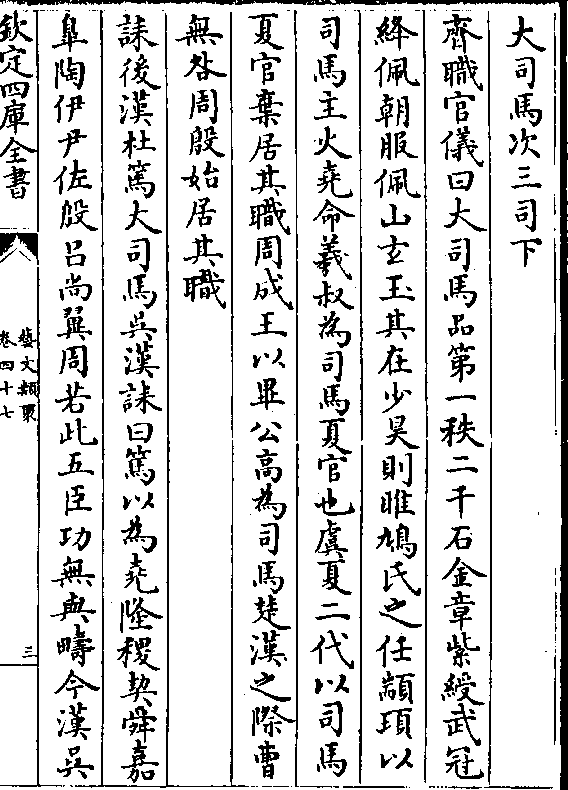 大司馬次三司下
齊職官儀曰大司馬品第一秩二千石金章紫綬武冠
絳佩朝服佩山玄玉其在少昊則睢鳩氏之任顓頊以
司馬主火堯命羲叔為司馬夏官也虞夏二代以司馬
夏官棄居其職周成王以畢公高為司馬楚漢之際曹
無咎周殷始居其職
誄後漢杜篤大司馬吳漢誄曰篤以為堯隆稷契舜嘉
臯陶伊尹佐殷呂尚翼周若此五臣功無與疇今漢吳
欽定四庫全書
藝文類聚
卷四十七
三